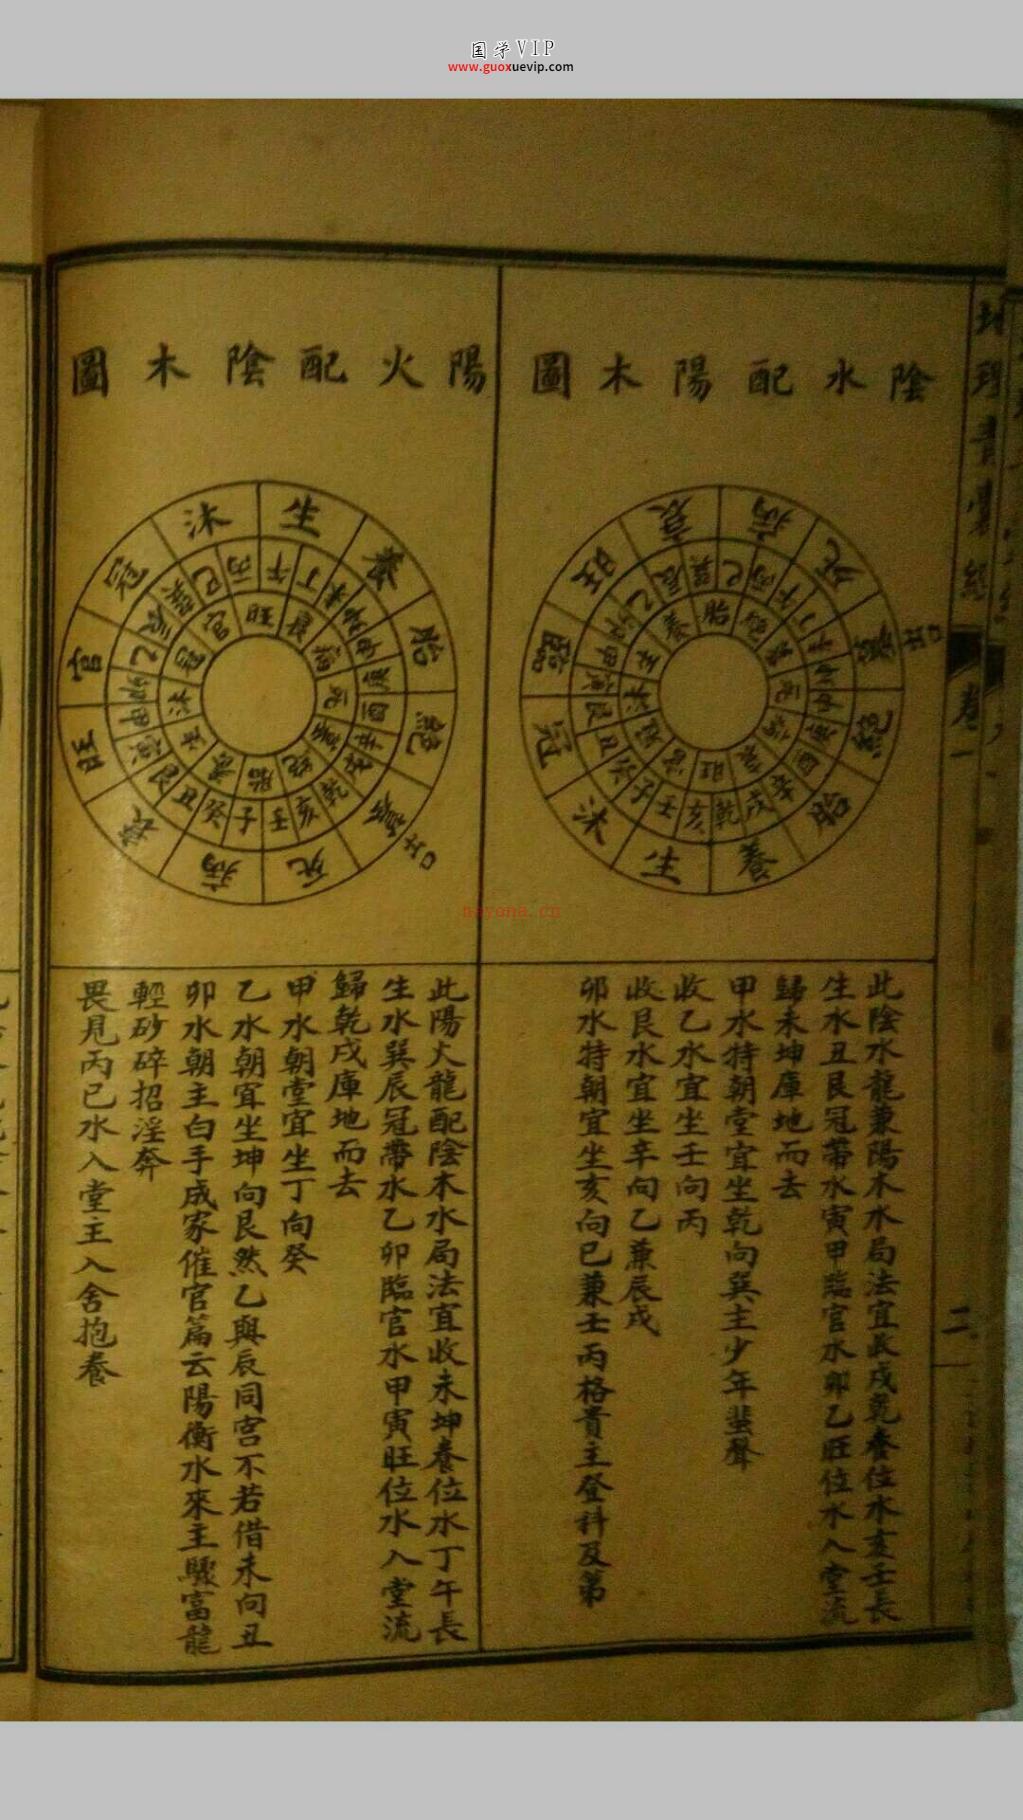 国学VIP
www.guoxuevip.com
陰水配陽木圖
病死墓絕胎養生沐冠臨旺衰
水口
此陰水龍兼陽木水局法宜收戌乾養位水亥壬長
生水丑艮冠帶水寅甲臨官水卯乙旺位水入堂流
歸未坤庫地而去
甲水特朝堂宜坐乾向巽主少年蜚聲
收乙水宜坐壬向丙
收艮水宜坐辛向乙兼辰戌
卯水特朝宜坐亥向巳兼壬丙格貴主登科及第
陽火配陰木圖
生養胎絕墓死病衰旺官冠沐
水口
此陽火龍配陰木水局法宜收未坤養位水丁午長
生水巽辰冠帶水乙卯臨官水甲寅旺位水入堂流
歸乾戌庫地而去
甲水朝堂宜坐丁向癸
乙水朝宜坐坤向艮然乙與辰同宮不若借未向丑
卯水朝主白手成家催官篇云陽衡水來主驟富龍
輕砂碎招淫奔
畏見丙巳水入堂主入舍抱養
卷一
二
nayona.cn